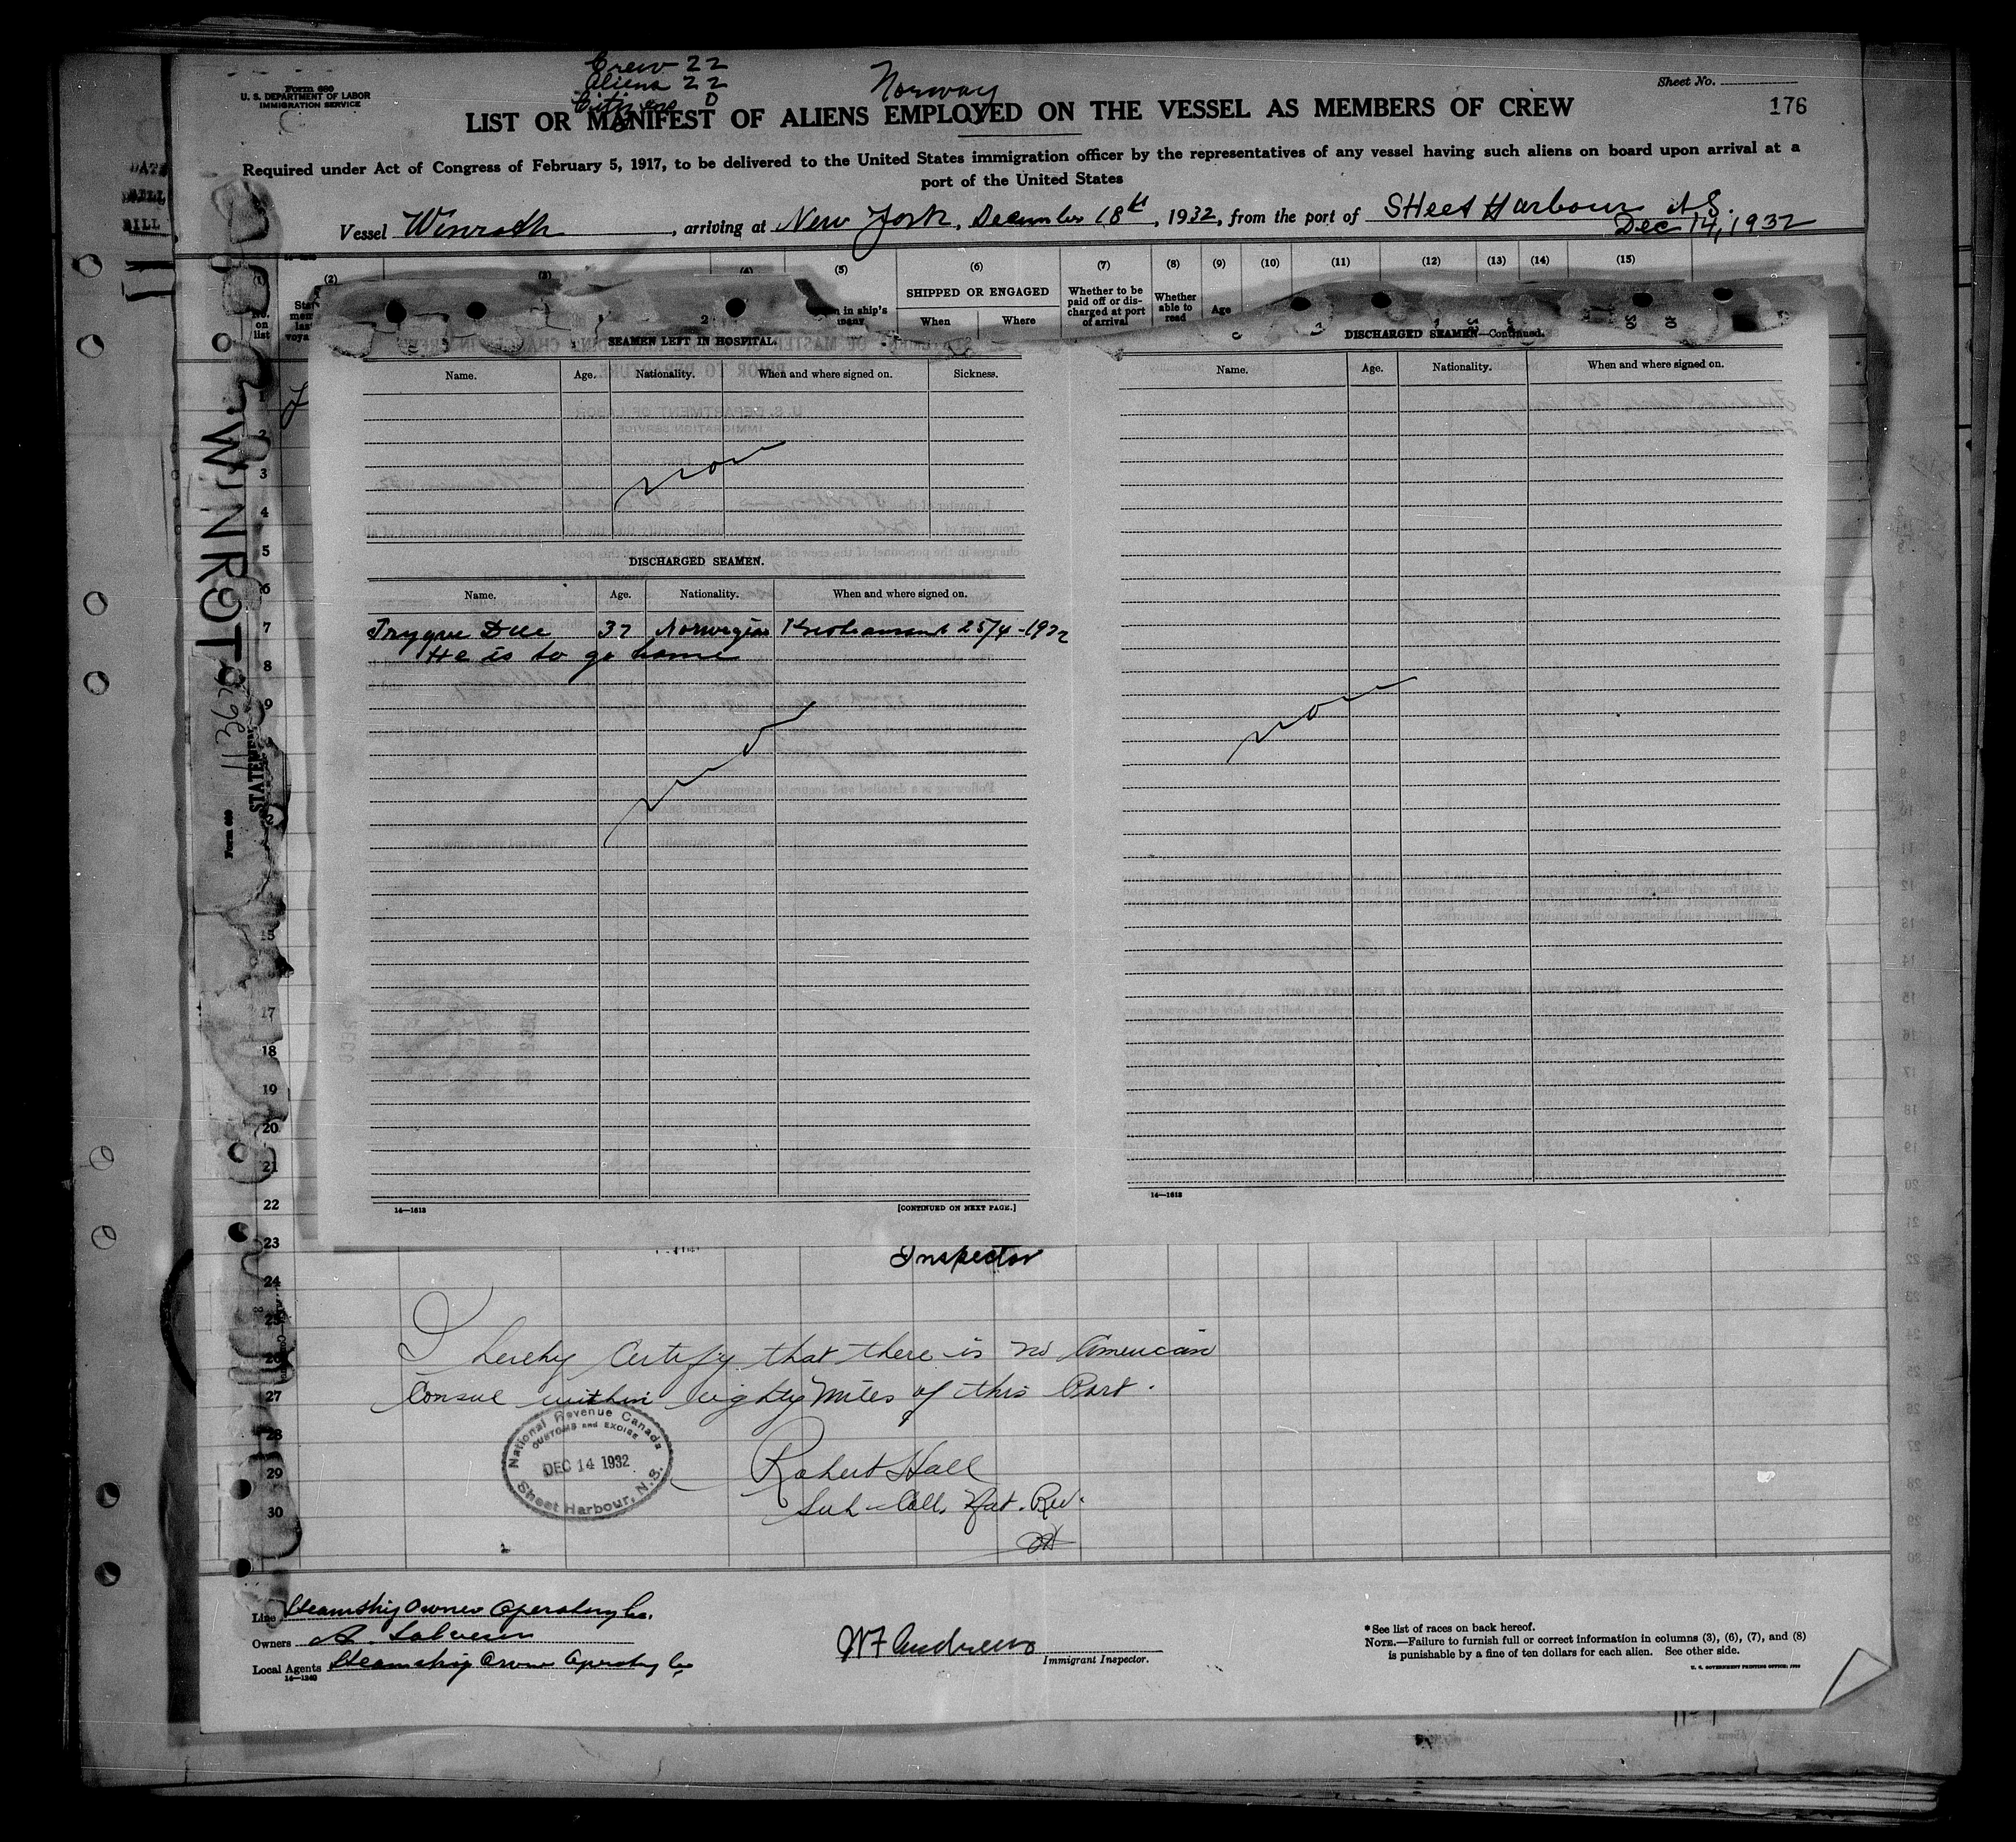 Crew 22
Aliens 22
Citizens 0
Norway
Form 680
U. S. DEPARTMENT OF LABOR
IMMIGRATION SERVICE
Sheet No.
176
LIST OR MANIFEST OF ALIENS EMPLOYED ON THE VESSEL AS MEMBERS OF CREW
Required under Act of Congress of February 5, 1917, to be delivered to the United States immigration officer by the representatives of any vessel having such aliens on board upon arrival at a
port of the United States
Vessel Winroth, arriving at New York, December 18th, 1932, from the port of Sheet Harbour N.S.
Dec 14, 1932
(1) (2) (3) (4) (5) (6) (7) (8) (9) (10) (11) (12) (13) (14) (15)
No. on list
SHIPPED OR ENGAGED
When Where
Whether to be paid off or discharged at port of arrival
Whether able to read
Age
in ship's
SEAMEN LEFT IN HOSPITAL.
Name. Age. Nationality. When and where signed on. Sickness.
none
DISCHARGED SEAMEN.
Name. Age. Nationality. When and where signed on.
Trygve Due 37 Norwegian 25/4-1932
He is to go home
[CONTINUED ON NEXT PAGE.]
14—1613
DISCHARGED SEAMEN—Continued.
Name. Age. Nationality. When and where signed on.
none
14—1613
WINROTH
STATEMENT
Form 689
3
4
5
6
7
8
9
15
17
18
19
20
21
22
23
24
25
26
27
28
29
30
Inspector
I hereby Certify that there is no American
Consul within eighty miles of this Port.
National Revenue Canada
CUSTOMS and EXCISE
DEC 14 1932
Sheet Harbour, N.S.
Robert Hall
Sub-Coll. Nat. Rev.
Line Steamship Owners Operating Co.
Owners A. Salvesen
Local Agents Steamship Owners Operating Co
14—1240
W F Andrews
Immigrant Inspector.
* See list of races on back hereof.
NOTE.—Failure to furnish full or correct information in columns (3), (6), (7), and (8)
is punishable by a fine of ten dollars for each alien. See other side.
U. S. GOVERNMENT PRINTING OFFICE